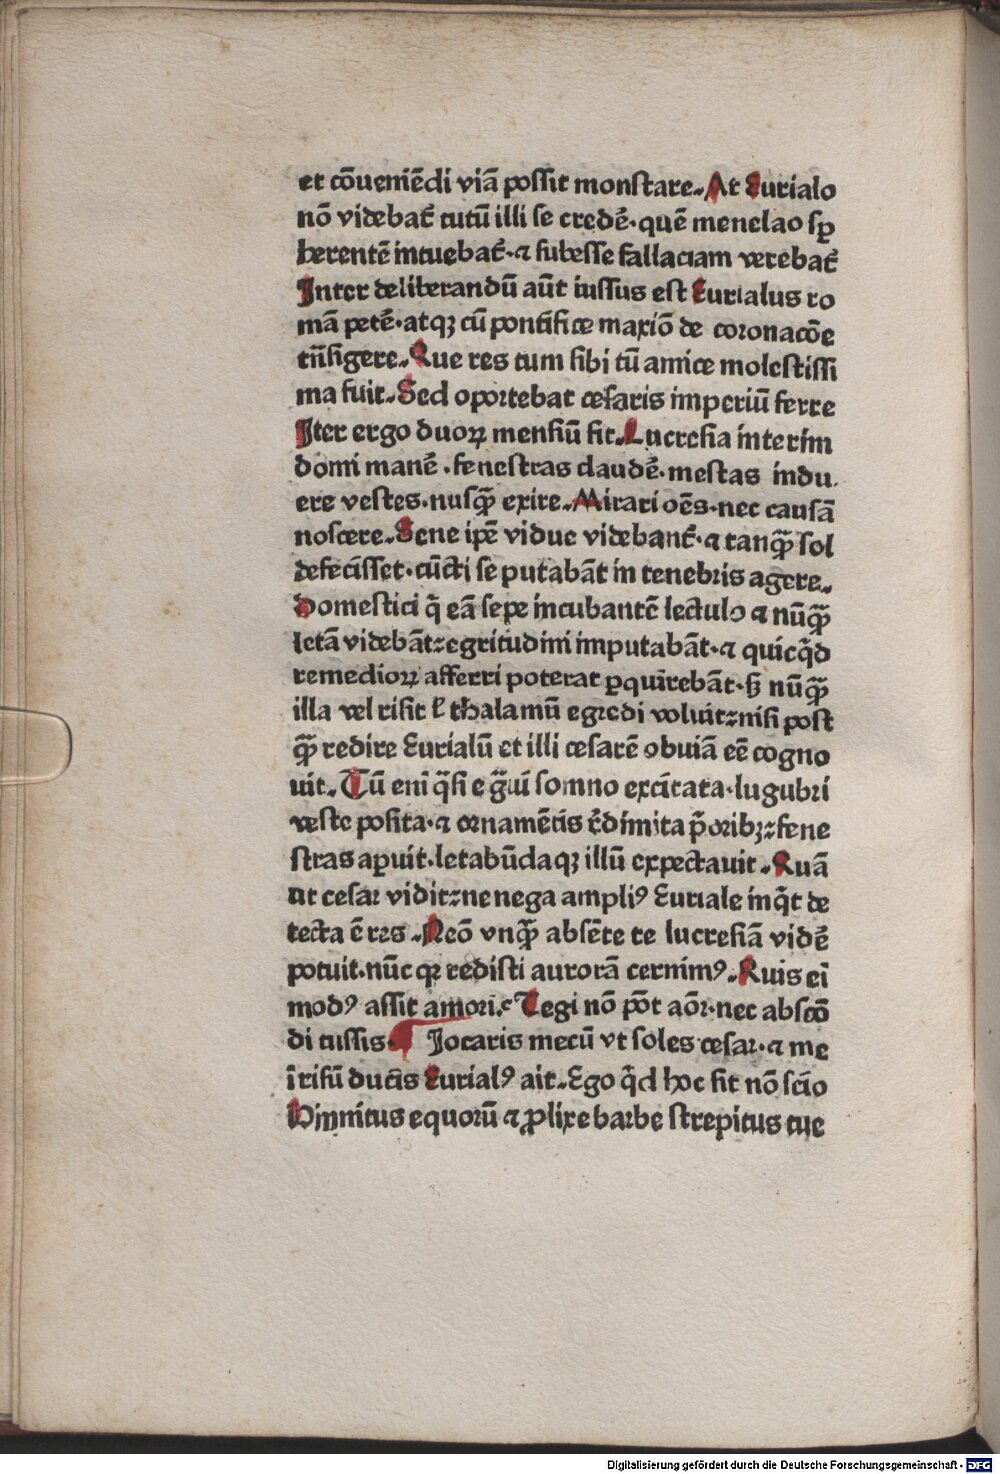 et cōueniēdi viā possit monstare. At Eurialo
nō videbat᷑ tutū illi se credē̄·quē menelao sꝑ
herentē intuebat᷑·⁊ subesse fallaciam verebat᷑
Inter deliberandū aūt iussus est Eurialus ro
mā petē̄·atqꝫ cū pontifice maxiō de coronacōe
trāsigere. Que res tum sibi tū amice molestissi
ma fuit. Sed oportebat cesaris imperiū ferre
Iter ergo duoꝝ mensiū fit. Lucresia interim
domi manē̄·fenestras claudē̄·mestas indu
ere vestes·nusqꝫ̄ exire. Mirari oēs·nec causā
noscere. Sene ipē vidue videbant᷑·⁊ tanqꝫ̄ sol
defecisset·cūcti se putabāt in tenebris agere.
Domestici q̄ eā sepe incubantē lectulo ⁊ nūqꝫ̄
letā videbāt:egritudini imputabāt·⁊ quicq̄d
remedioꝝ afferri poterat ꝑquirebāt·sꝫ nūqꝫ̄
illa vel risit ł thalamū egredi voluit:nisi post
qꝫ̄ redire Eurialū et illi cesarē obuiā eē cogno
uit. Tū enī q̄si e ḡui somno excitata·lugubri
veste posita·⁊ ornamētis r̄dimita p̄oribꝫ:fene
stras aꝑuit·letabūdaqꝫ illū expectauit. Quā
ut cesar vidit:ne nega ampliꝰ Euriale inq̄t de
tecta ē res. Neō vnqꝫ̄ absēte te lucresiā vidē̄
potuit·nūc qꝛ redisti aurorā cernimꝰ. Quis ei
modꝰ assit amori. Tegi nō pōt aōr·nec abscō
di tussis. Iocaris mecū vt soles cesar·⁊ me
ī risū ducis Eurialꝰ ait. Ego q̄d hoc sit nō scio
Hinnitus equorū ⁊ ꝓlixe barbe strepitus tue
Digitalisierung gefördert durch die Deutsche Forschungsgemeinschaft - DFG